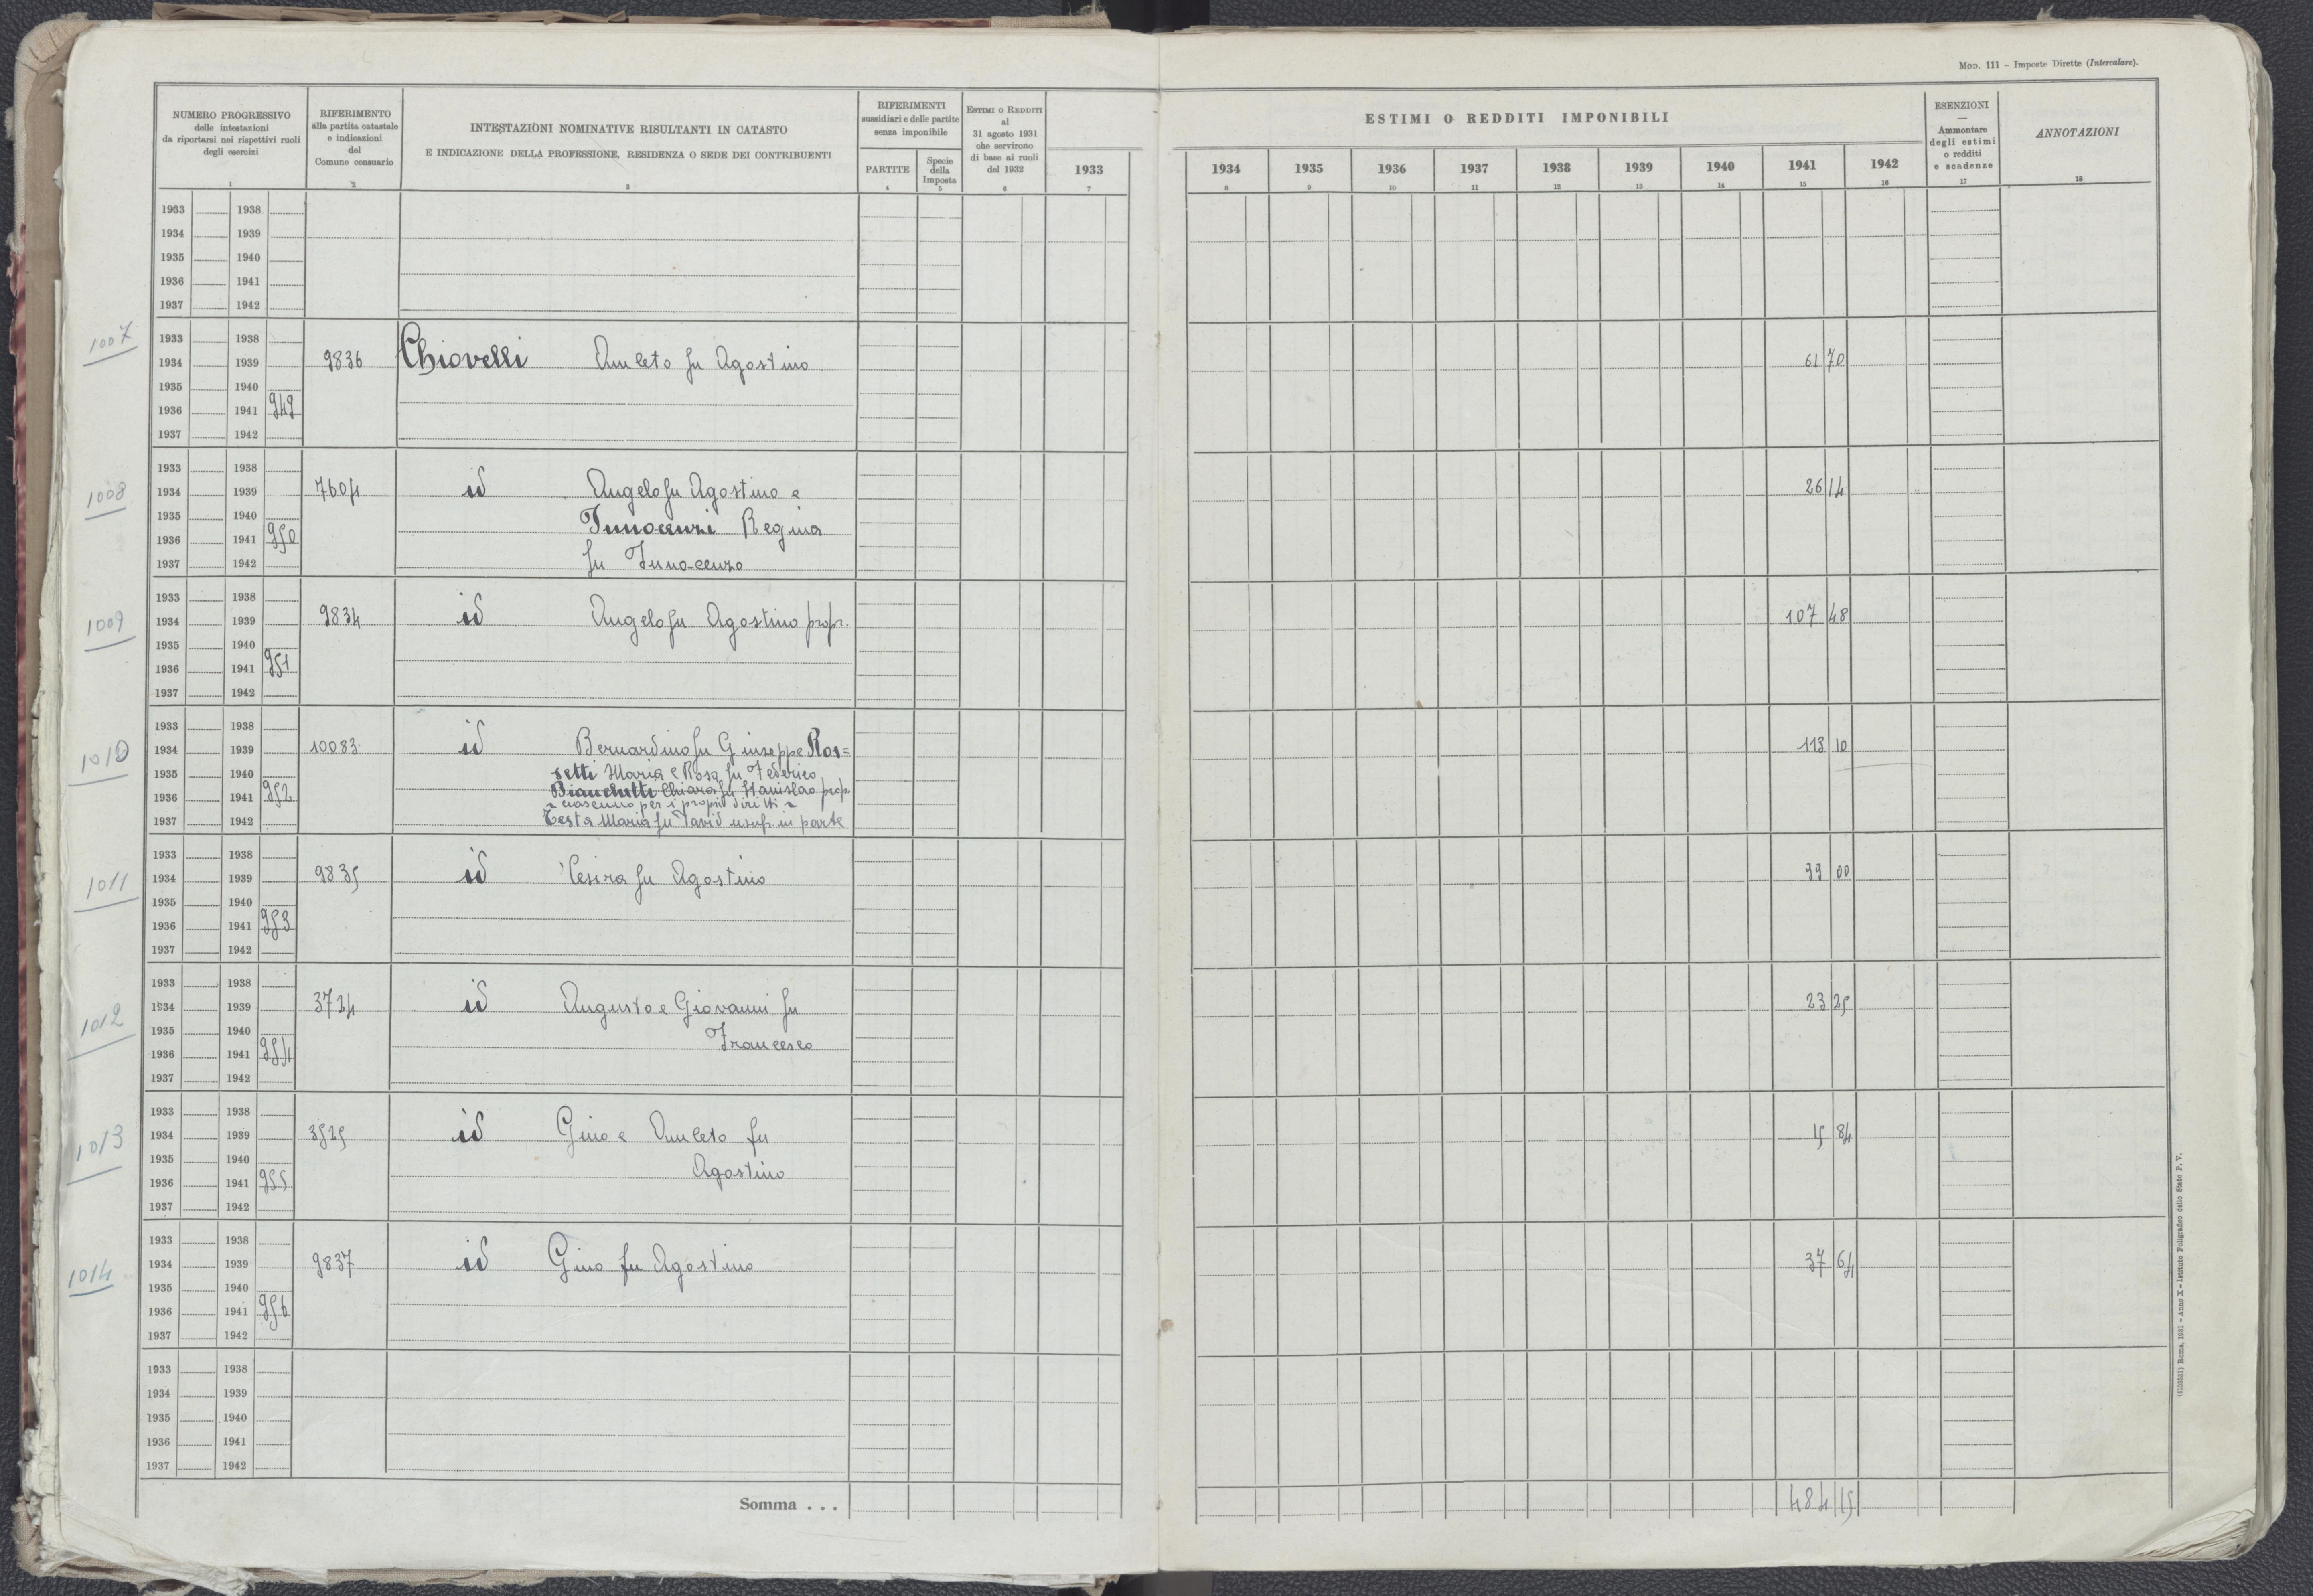 Mod. 111 - Imposte Dirette (Intercalare).
NUMERO PROGRESSIVO
delle intestazioni
da riportarsi nei rispettivi ruoli
degli esercizi
1
RIFERIMENTO
alla partita catastale
e indicazioni
del
Comune censuario
2
INTESTAZIONI NOMINATIVE RISULTANTI IN CATASTO
E INDICAZIONE DELLA PROFESSIONE, RESIDENZA O SEDE DEI CONTRIBUENTI
3
RIFERIMENTI
sussidiari e delle partite
senza imponibile
PARTITE
4
Specie
della
Imposta
5
Estimi o Redditi
al
31 agosto 1931
che servirono
di base ai ruoli
del 1932
6
1933
7
ESTIMI O REDDITI IMPONIBILI
1934 1935 1936 1937 1938 1939 1940 1941 1942
8 9 10 11 12 13 14 15 16
ESENZIONI
—
Ammontare
degli estimi
o redditi
e scadenze
17
ANNOTAZIONI
18
1933 1938
1934 1939
1935 1940
1936 1941
1937 1942
1007
1933 1938
1934 1939 9836 Chiovelli Amleto fu Agostino 61 70
1935 1940
1936 1941 949
1937 1942
1008
1933 1938
1934 1939 7604 id Angelo fu Agostino e 26 14
1935 1940 Innocenzi Regina
1936 1941 950
1937 1942 fu Innocenzo
1009
1933 1938
1934 1939 9834 id Angelo fu Agostino propr. 107 48
1935 1940
1936 1941 951
1937 1942
1010
1933 1938
1934 1939 10083 id Bernardino fu Giuseppe Ros=
113 10
1935 1940 setti Maria e Rosa fu Federico
1936 1941 952 Bianchetti Chiara fu Stanislao prop.
ciascuno per i propri diritti
1937 1942 Testa Maria fu David usuf. in parte
1011
1933 1938
1934 1939 9835 id Cesira fu Agostino 99 00
1935 1940
1936 1941 953
1937 1942
1012
1933 1938
1934 1939 3724 id Augusto e Giovanni fu 23 25
1935 1940 Francesco
1936 1941 954
1937 1942
1013
1933 1938
1934 1939 3525 id Gino e Amleto fu 15 84
1935 1940 Agostino
1936 1941 955
1937 1942
1014
1933 1938
1934 1939 9837 id Gino fu Agostino 37 64
1935 1940
1936 1941 956
1937 1942
1933 1938
1934 1939
1935 1940
1936 1941
1937 1942
Somma . . . 484 15
(4100581) Roma, 1931 - Anno X - Istituto Poligrafico dello Stato P. V.